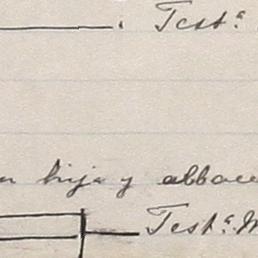 . Test.ª
hija y albace
Test.ª M